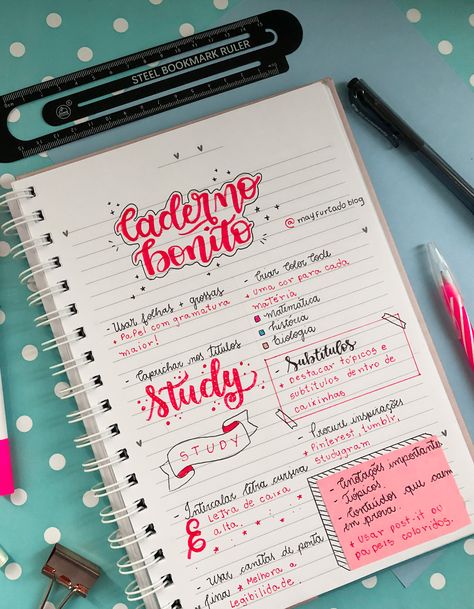 STEEL BOOKMARK RULER
Caderno
bonito
@mayfurtadoblog
- Usar folhas + grossas
+ Papel com gramatura
maior!
- Caprichar nos títulos
Study
STUDY
- Intercalar letra cursiva
E
Letra de caixa
alta.
- Usar canetas de ponta
fina
* Melhora a
legibilidade.
- Criar Color Code
+ uma cor para cada
matéria
matemática
história
biologia
- Subtítulos
+ Destacar tópicos e
subtítulos dentro de
caixinhas
- Procure inspirações
+ Pinterest, tumblr,
studygram
- Anotações importantes
- Tópicos.
- Conteúdos que caem
em prova.
+ Usar post-it ou
papéis coloridos.